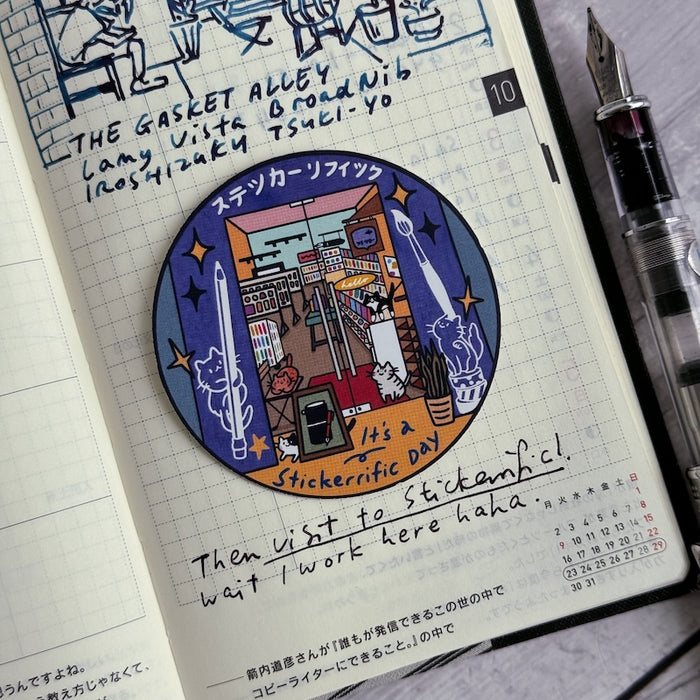 THE GASKET ALLEY
Lamy Vista Broad Nib
IROSHIZUKU TSUKI-YO
10
ステッカーリフィック
hello
It's a
Stickerrific DAY
Then visit to Stickerrific!
wait I work here haha.
月 火 水 木 金 土 日
1
2 3 4 5 6 7 8
9 10 11 12 13 14 15
16 17 18 19 20 21 22
23 24 25 26 27 28 29
30 31
——箭内道彦さんが『誰もが発信できるこの世の中で
コピーライターにできること。』の中で
うんですよね。
教え方じゃなくて、